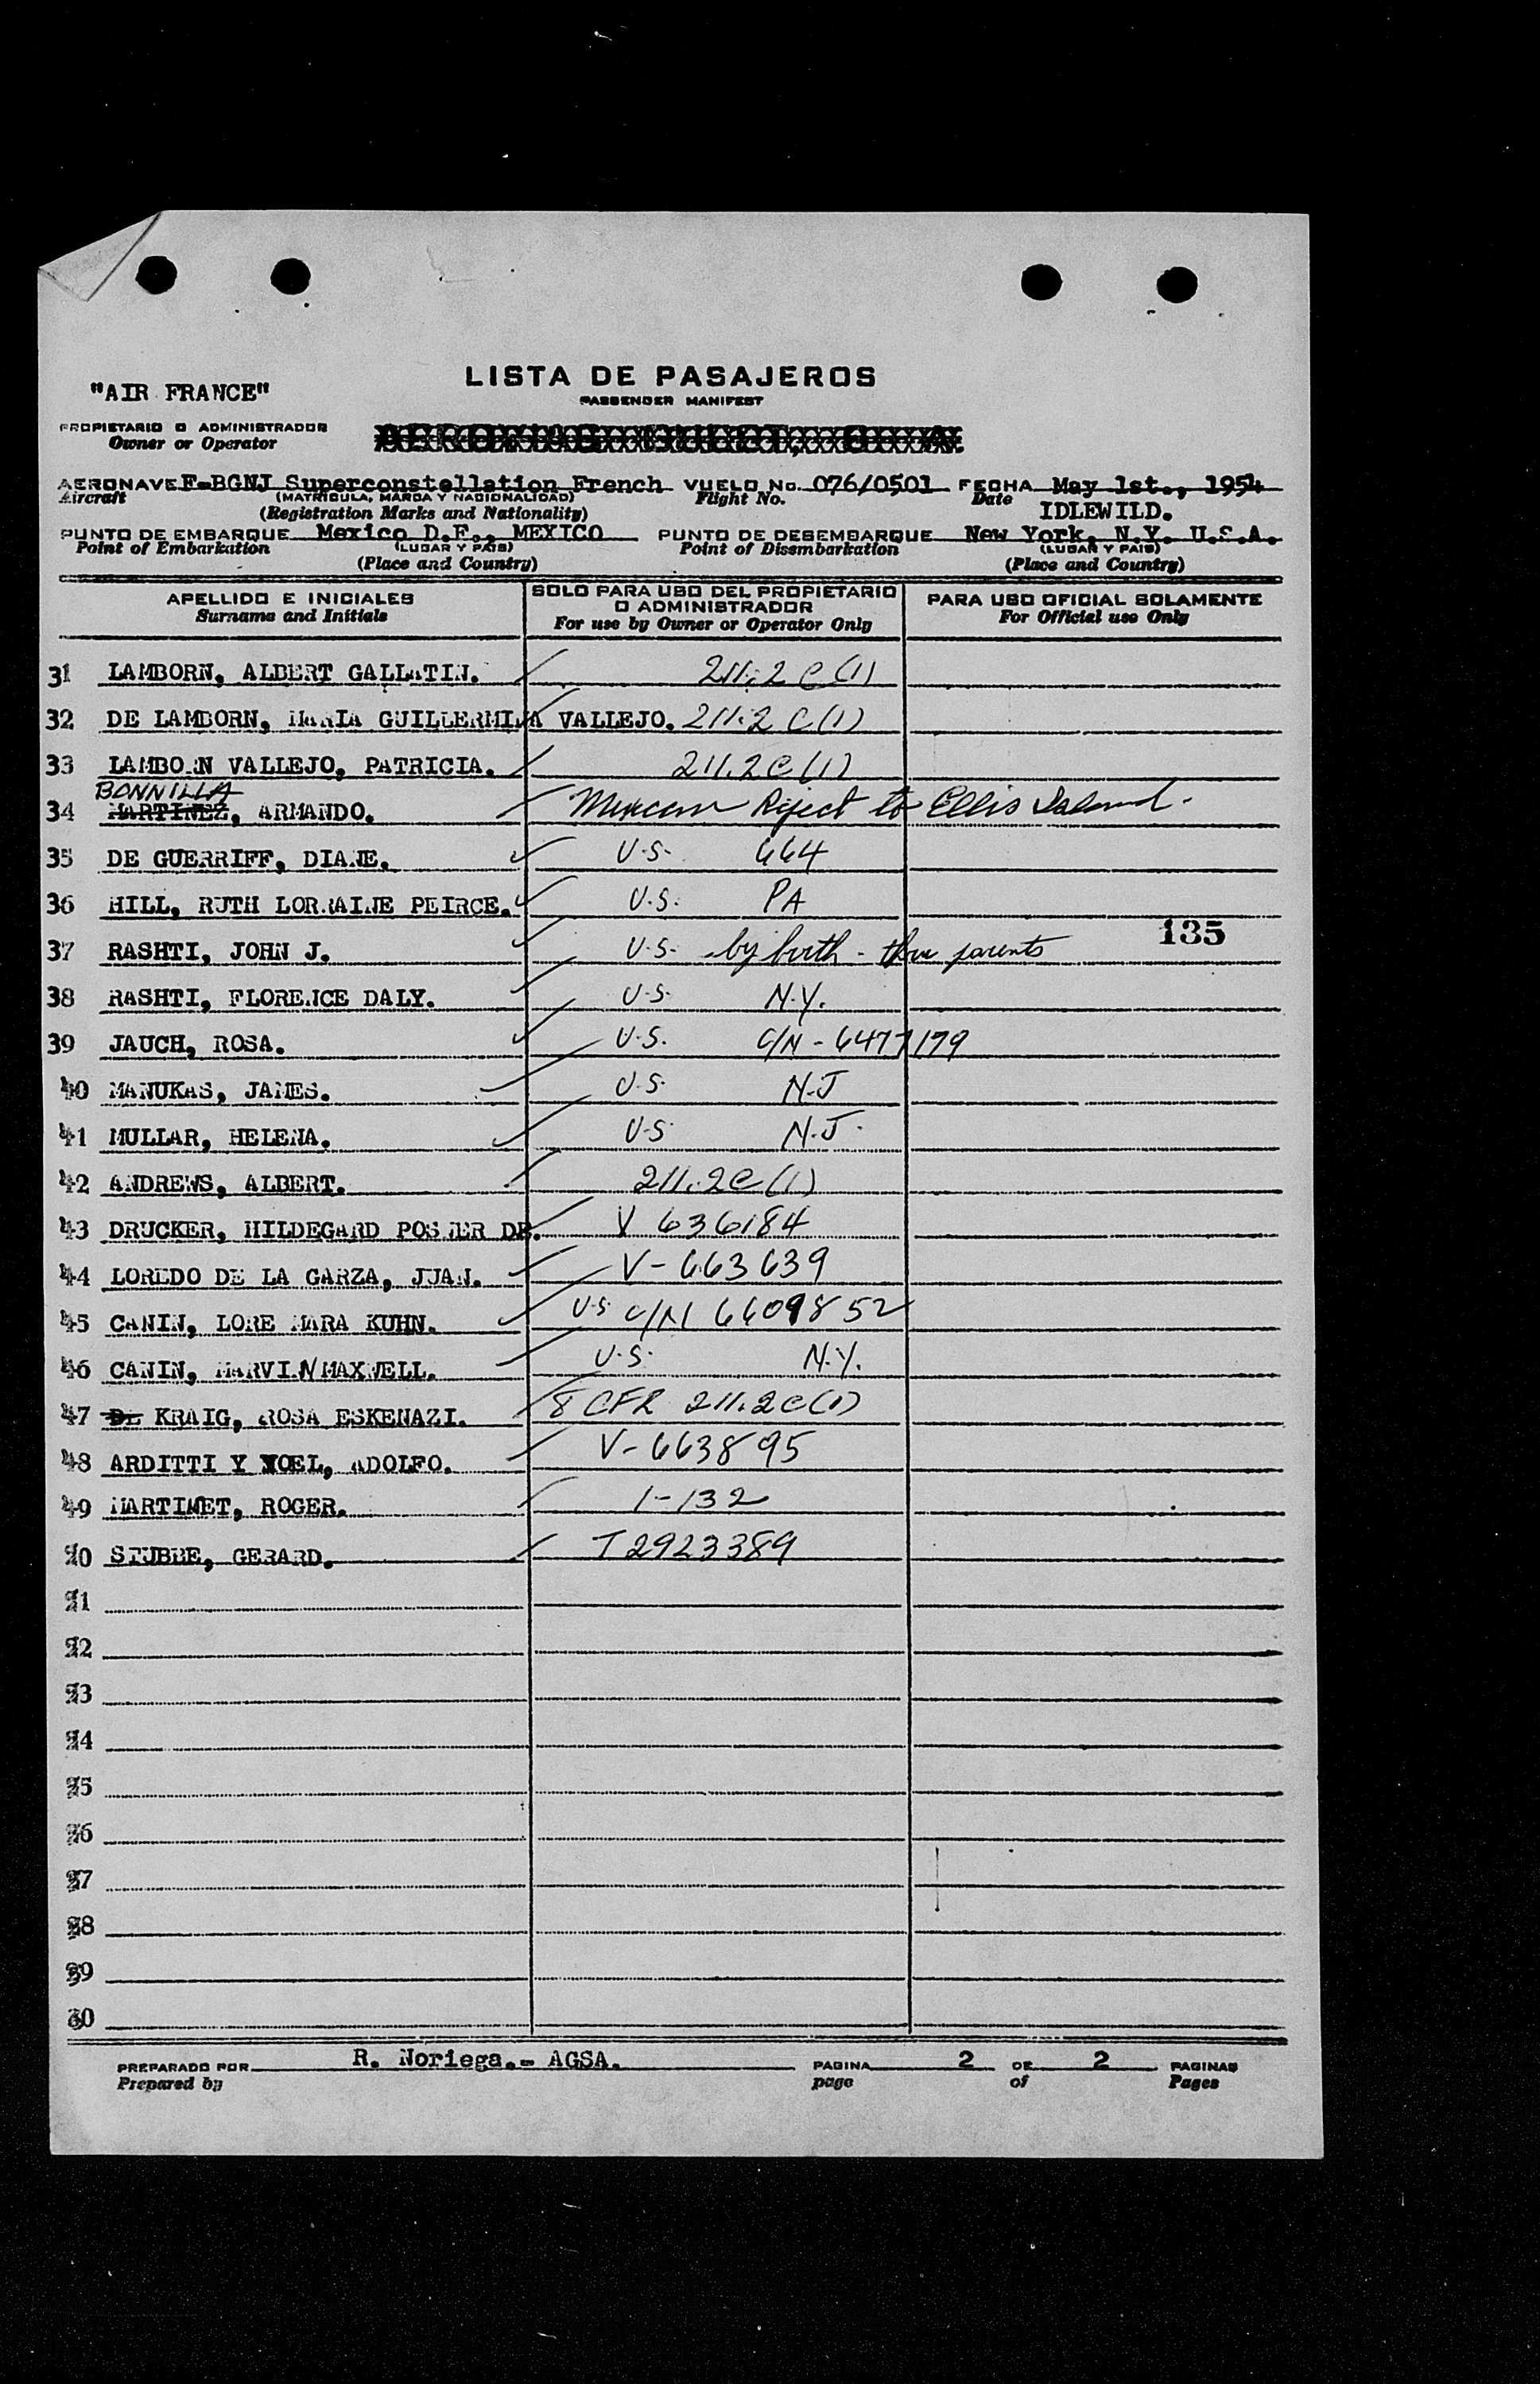 LISTA DE PASAJEROS
"AIR FRANCE"
PASSENGER MANIFEST
PROPIETARIO O ADMINISTRADOR
Owner or Operator
AERONAVE F-BGNJ Superconstellation French VUELO No. 076/0501 FECHA May 1st., 1954
Aircraft (MATRICULA, MARCA Y NACIONALIDAD) Flight No. Date
(Registration Marks and Nationality) IDLEWILD.
PUNTO DE EMBARQUE Mexico D.F., MEXICO PUNTO DE DESEMBARQUE New York, N.Y. U.S.A.
Point of Embarkation (LUGAR Y PAIS) Point of Disembarkation (LUGAR Y PAIS)
(Place and Country) (Place and Country)
APELLIDO E INICIALES SOLO PARA USO DEL PROPIETARIO O ADMINISTRADOR PARA USO OFICIAL SOLAMENTE
Surname and Initials For use by Owner or Operator Only For Official use Only
31 LAMBORN, ALBERT GALLATIN. 211.2 C (1)
32 DE LAMBORN, MARIA GUILLERMINA VALLEJO. 211.2 C (1)
33 LAMBORN VALLEJO, PATRICIA. 211.2 C (1)
BONNILLA
34 MARTINEZ, ARMANDO. Mexican Reject to Ellis Island.
35 DE GUERRIFF, DIANE. U.S. 664
36 HILL, RUTH LORRAINE PEIRCE. U.S. PA
135
37 RASHTI, JOHN J. U.S. by birth - thru parents
38 RASHTI, FLORENCE DALY. U.S. N.Y.
39 JAUCH, ROSA. U.S. C/N - 6477179
40 MANUKAS, JAMES. U.S. N.J
41 MULLAR, HELENA. U.S. N.J.
42 ANDREWS, ALBERT. 211.2C (1)
43 DRUCKER, HILDEGARD POSNER DE. V 636184
44 LOREDO DE LA GARZA, JUAN. V-663639
45 CANIN, LORE MARA KUHN. U.S. C/N 6609852
46 CANIN, MARVIN MAXWELL. U.S. N.Y.
47 DE KRAIG, ROSA ESKENAZI. 8 CFR 211.2C(1)
48 ARDITTI Y YOEL, ADOLFO. V-663895
49 MARTINET, ROGER. 1-132
50 STUBBE, GERARD. T2923389
51
52
53
54
55
56
57
58
59
60
PREPARADO POR R. Noriega.- AGSA. PAGINA 2 DE 2 PAGINAS
Prepared by page of Pages